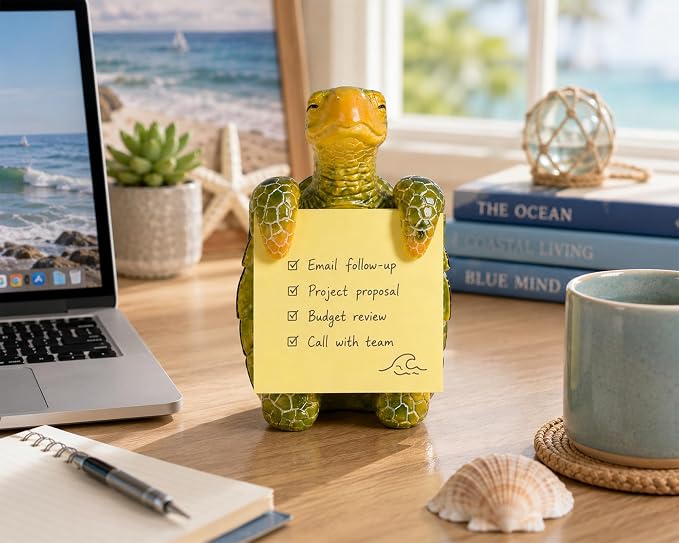 Email follow-up
Project proposal
Budget review
Call with team
THE OCEAN
COASTAL LIVING
BLUE MIND